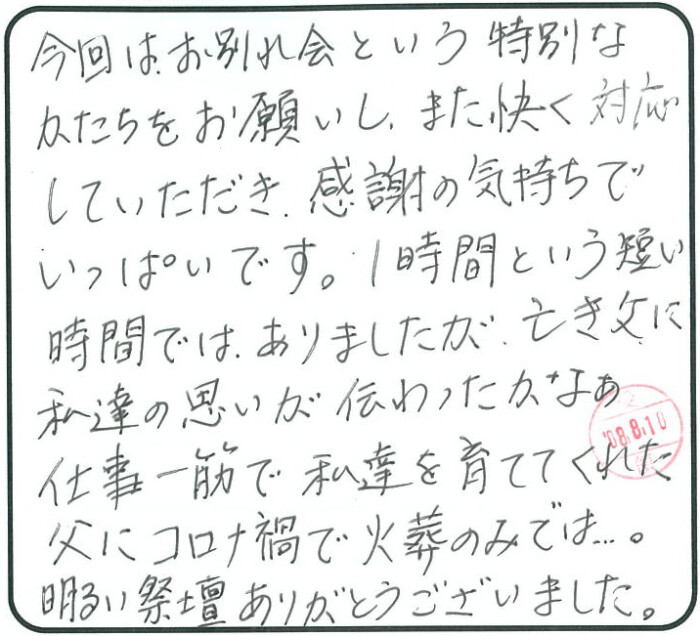 今回は、お別れ会という特別な
かたちをお願いし、また快く対応
していただき、感謝の気持ちで
いっぱいです。1時間という短い
時間では、ありましたが、亡き父に
私達の思いが伝わったかなぁ
'08.8.10
仕事一筋で私達を育ててくれた
父にコロナ禍で火葬のみでは…。
明るい祭壇ありがとうございました。